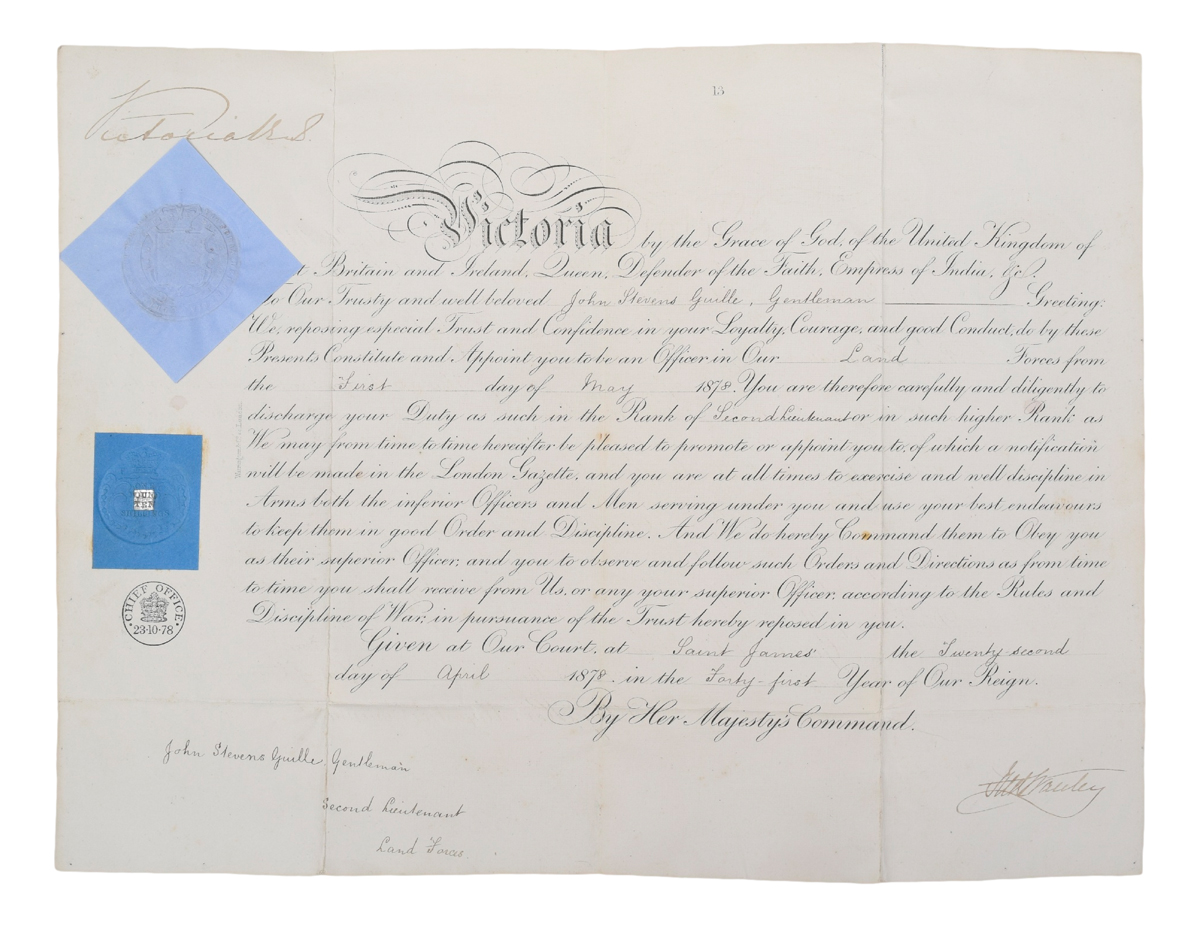 13
Victoria R I
Victoria by the Grace of God, of the United Kingdom of
t Britain and Ireland, Queen, Defender of the Faith, Empress of India, &c.
To Our Trusty and well beloved John Stevens Guille, Gentleman Greeting:
We, reposing especial Trust and Confidence in your Loyalty, Courage, and good Conduct, do by these
Presents Constitute and Appoint you to be an Officer in Our Land Forces from
the First day of May 1878. You are therefore carefully and diligently to
discharge your Duty as such in the Rank of Second Lieutenant or in such higher Rank as
We may from time to time hereafter be pleased to promote or appoint you to, of which a notification
will be made in the London Gazette, and you are at all times to exercise and well discipline in
Arms both the inferior Officers and Men serving under you and use your best endeavours
to keep them in good Order and Discipline. And We do hereby Command them to Obey you
as their superior Officer, and you to observe and follow such Orders and Directions as from time
to time you shall receive from Us, or any your superior Officer, according to the Rules and
Discipline of War, in pursuance of the Trust hereby reposed in you.
Given at Our Court, at Saint James' the Twenty second
day of April 1878, in the Forty-first Year of Our Reign.
By Her Majesty's Command.
CHIEF OFFICE
23·10·78
John Stevens Guille, Gentleman
Second Lieutenant
Land Forces